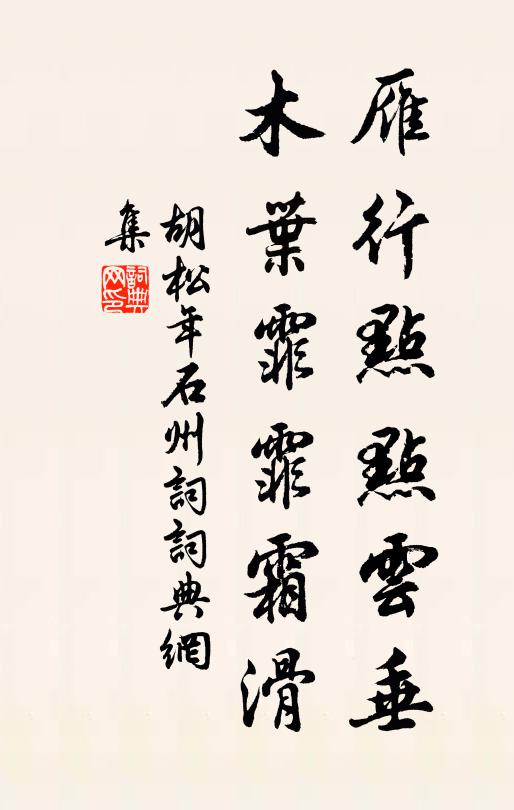 雁行點點雲垂
木葉霏霏霜滑
胡松年石州詞詞典網
集
詞典
网印